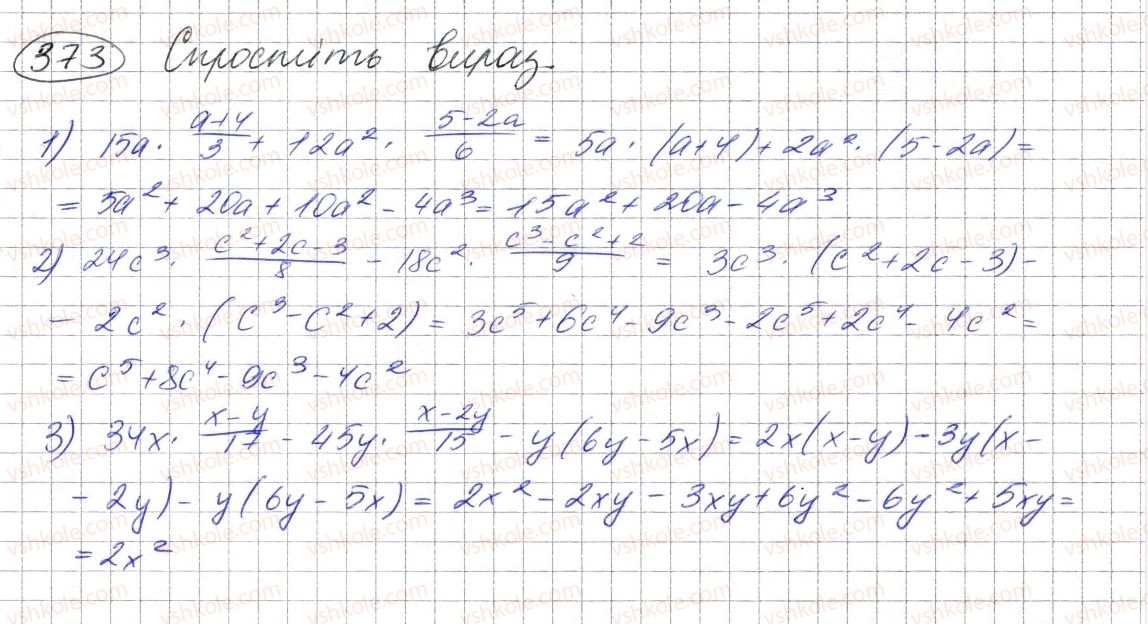 373 Спростіть вираз.
1) 15a · (a+4)/3 + 12a² · (5-2a)/6 = 5a · (a+4) + 2a² · (5-2a) =
= 5a² + 20a + 10a² - 4a³ = 15a² + 20a - 4a³
2) 24c³ · (c²+2c-3)/8 - 18c² · (c³-c²+2)/9 = 3c³ · (c²+2c-3) -
- 2c² · (c³-c²+2) = 3c⁵+6c⁴-9c³-2c⁵+2c⁴-4c² =
= c⁵+8c⁴-9c³-4c²
3) 34x · (x-y)/17 - 45y · (x-2y)/15 - y(6y-5x) = 2x(x-y) - 3y(x-
- 2y) - y(6y-5x) = 2x² - 2xy - 3xy + 6y² - 6y² + 5xy =
= 2x²